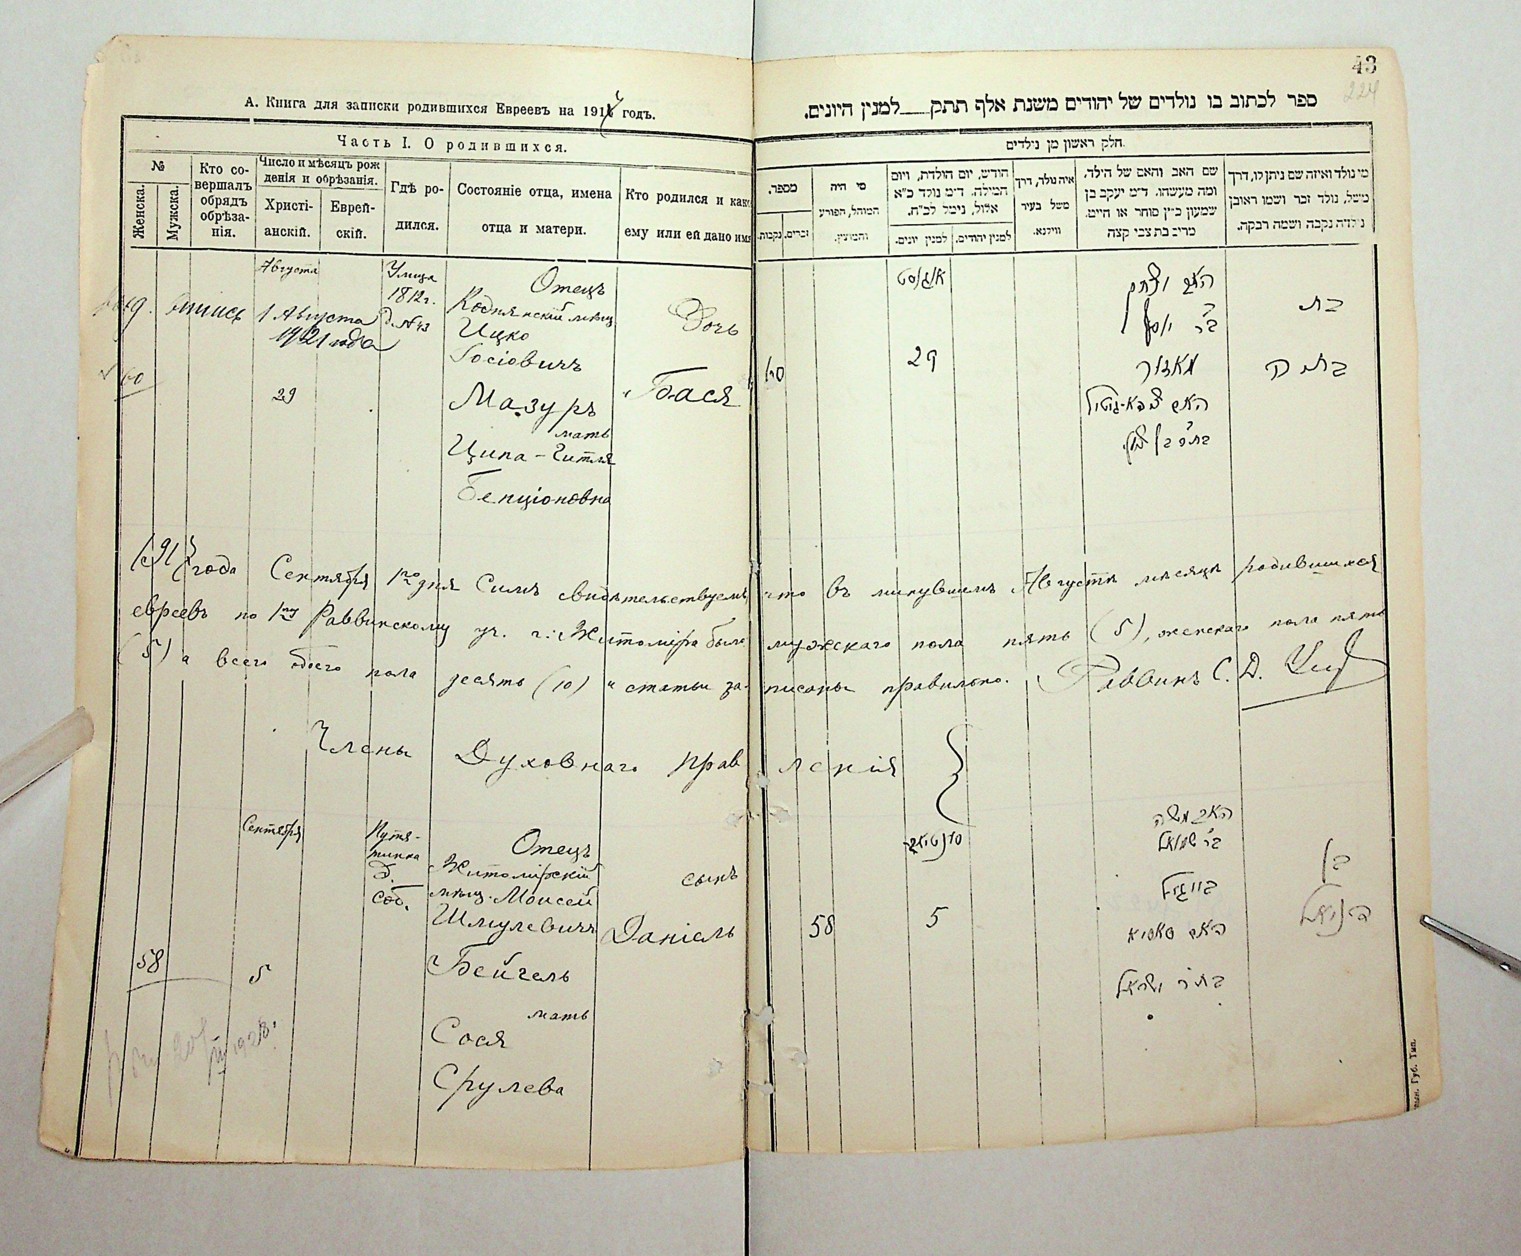 43
224
А. Книга для записки родившихся Евреевъ на 1917 годъ.
Часть I. О родившихся.
№
Женска.
Мужска.
Кто совершалъ обрядъ обрѣзанія.
Число и мѣсяцъ рожденія и обрѣзанія.
Христіанскій.
Еврейскій.
Гдѣ родился.
Состояніе отца, имена отца и матери.
Кто родился и како
ему или ей дано имя
ספר לכתוב בו נולדים של יהודים משנת אלף תתק למנין היונים.
חלק ראשון מן נילדים
מספר.
זכרים.
נקבות.
מי היה
המוהל, הפורע
והמוצץ.
חודש, יום הולדת, ויום
המילה. ד״מ נולד כ״א
אלול, נימל לכ״ח.
למנין יונים.
למנין יהודים.
איה נולד, דרך
משל בעיר
ווילנא.
שם האב והאם של הילד,
ומה מעשהו. ד״מ יעקב בן
שמעון כ״ץ סוחר או חייט.
מרים בת צבי קצה
מי נולד ואיזה שם ניתן לו, דרך
משל, נולד זכר ושמו ראובן
נילדה נקבה ושמה רבקה.
Августа
Улица
1812г.
д. №43
1 Августа
1921 года
60
29
Отецъ
Коднянскій мѣщ.
Ицко
Іосіовичъ
Мазуръ
мать
Ципа-Гитля
Бенціоновна
Дочь
Бася
60
אוגוסט
29
האב יצחק
ב״ר יוסף
מאזור
האם ציפא-גיטיל
בת ר׳ בן ציון
בת
1917 года Сентября 1го дня Симъ свидѣтельствуемъ что въ минувшемъ Августѣ мѣсяцѣ родившихся
евреевъ по 1му Раввинскому уч. г. Житоміра было мужскаго пола пять (5), женскаго пола пять
(5) а всего обоего пола десять (10) и статьи записаны правильно. Раввинъ С. Д.
Члены Духовнаго правленія
Сентября
Путятинка
д.
соб.
58
5
Отецъ
Житомірскій
мѣщ. Моисей
Шмулевичъ
Бейгель
мать
Сося
Срулева
сынъ
Даніель
58
סענטיאבר
5
האב משה
ב״ר שמואל
בייגיל
האם סאסיא
בת ר׳ ישראל
בן
דניאל
1928.
Губ. Тип.